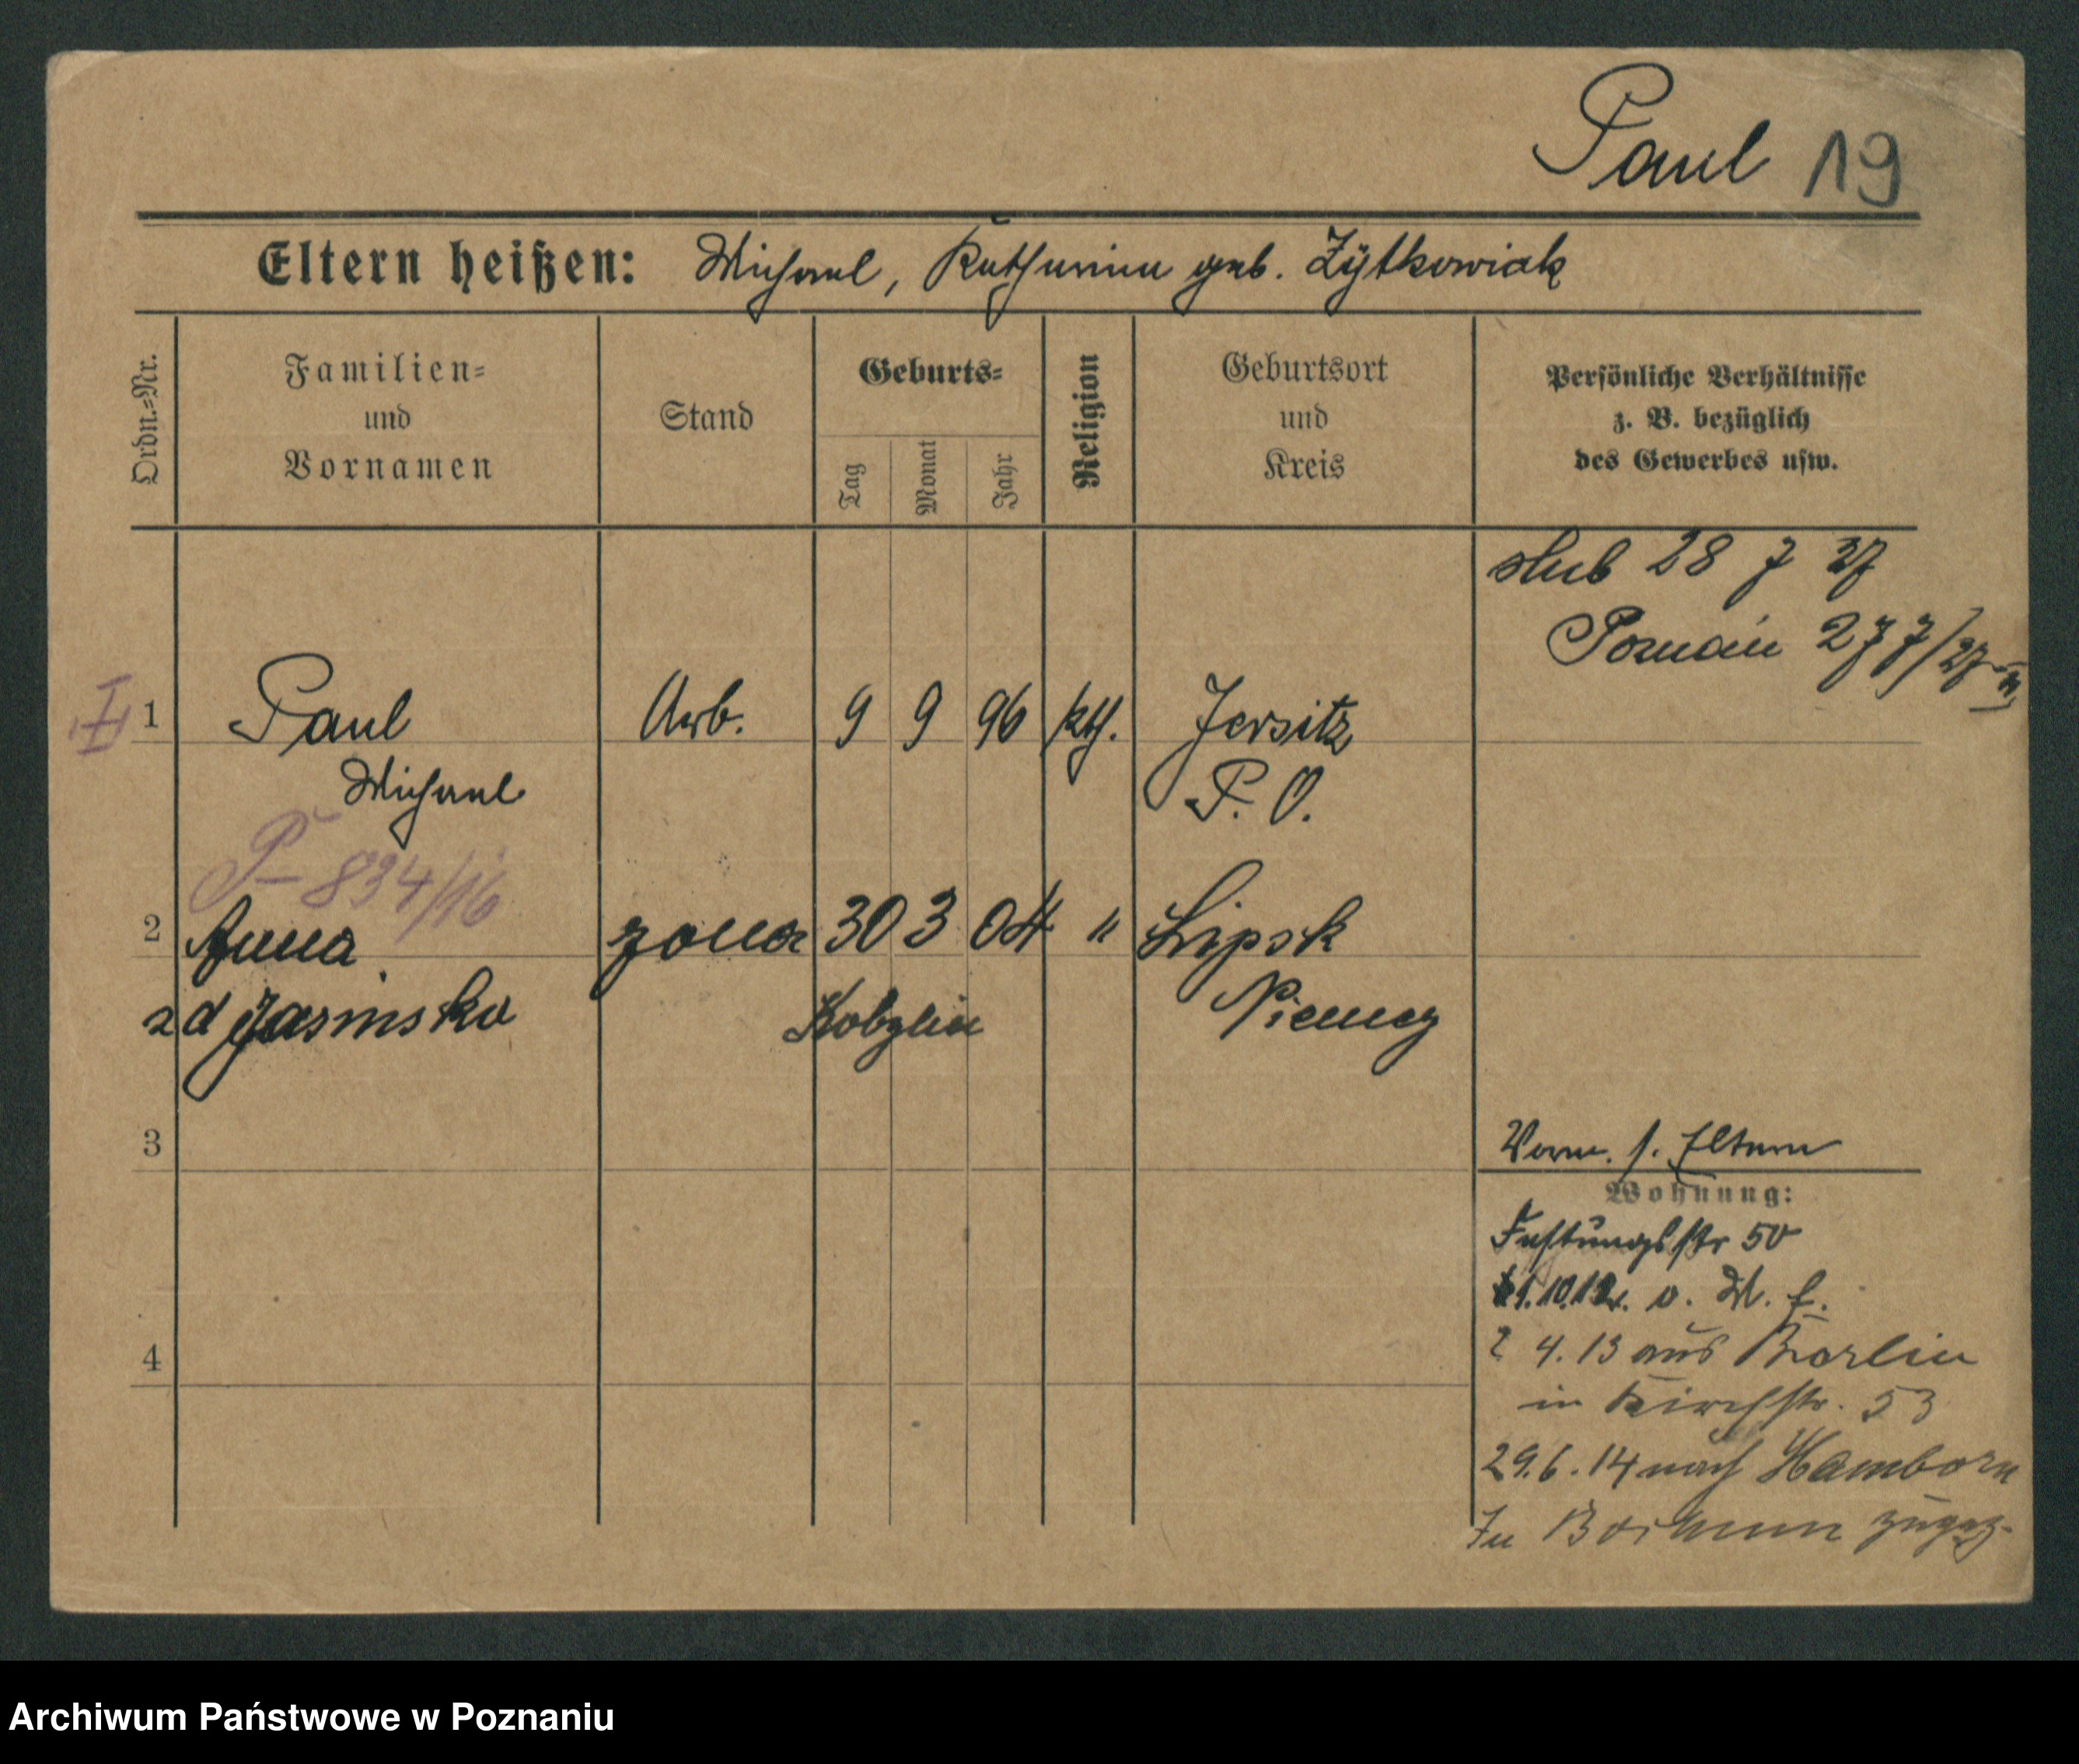 Paul 19
Eltern heißen: Michael, Katharina geb. Zÿtkowiak
Ordn.=Nr.
Familien=
und
Vornamen
Stand
Geburts=
Tag
Monat
Jahr
Religion
Geburtsort
und
Kreis
Persönliche Verhältnisse
z. B. bezüglich
des Gewerbes usw.
slub 28 7 27
Poznań 277/27
I 1 Paul Arb. 9 9 96 kth. Jersitz
Michael P. O.
P- 834/16
2 Anna żona 30 3 04 " Lipsk
zd Jasinska Kobylin Niemcy
3
Vorm. s. Eltern
Wohnung:
Festungsstr 50
1.10.12. v. M. E.
2 4. 13 aus Berlin
4
in Kirchstr. 53
29.6.14 nach Hamborn
In Bochum zugez.
Archiwum Państwowe w Poznaniu